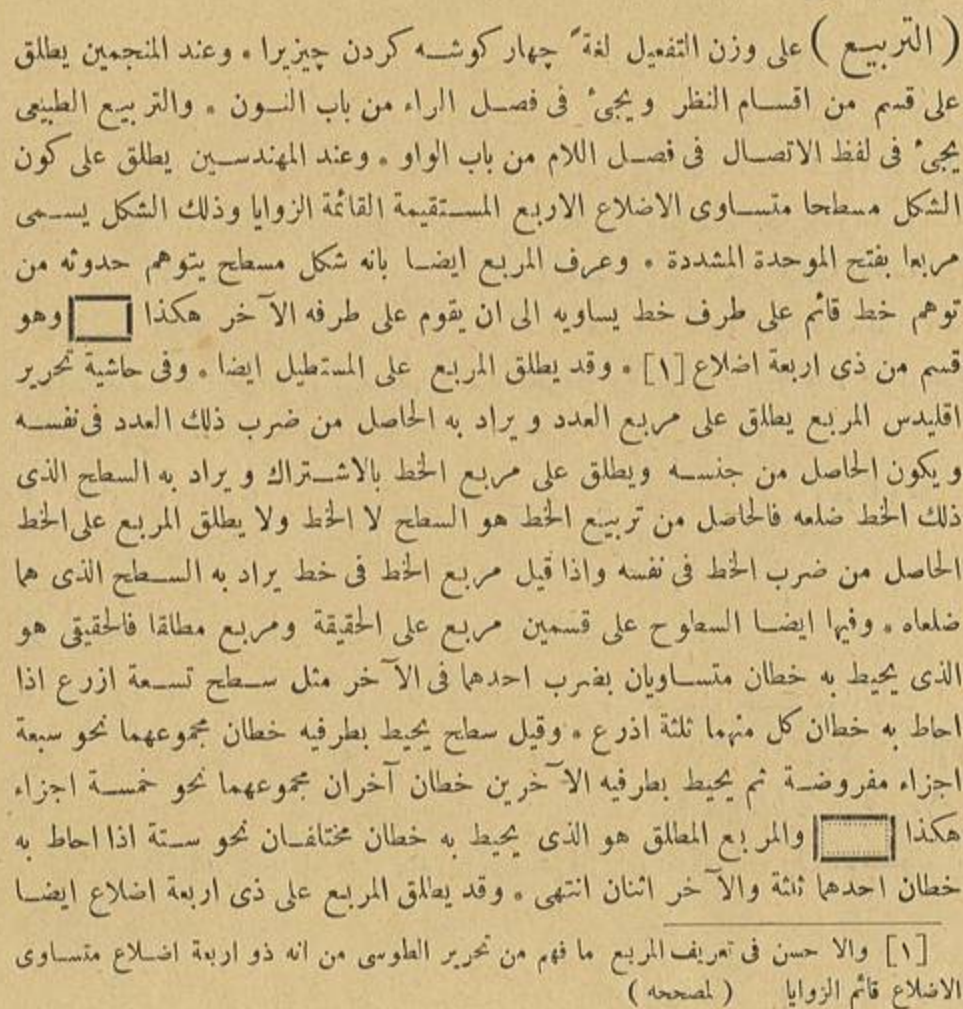 ( التربيع ) على وزن التفعيل لغةً چهار كوشه كردن چيزيرا ٠ وعند المنجمين يطلق
على قسم من اقسام النظر ويجئ فى فصل الراء من باب النون ٠ والتربيع الطبيعى
يجئ فى لفظ الاتصال فى فصل اللام من باب الواو ٠ وعند المهندسين يطلق على كون
الشكل مسطحا متساوى الاضلاع الاربع المستقيمة القائمة الزوايا وذلك الشكل يسمى
مربعا بفتح الموحدة المشددة ٠ وعرف المربع ايضا بانه شكل مسطح يتوهم حدوثه من
توهم خط قائم على طرف خط يساويه الى ان يقوم على طرفه الآخر هكذا وهو
قسم من ذى اربعة اضلاع [١] ٠ وقد يطلق المربع على المستطيل ايضا ٠ وفى حاشية تحرير
اقليدس المربع يطلق على مربع العدد ويراد به الحاصل من ضرب ذلك العدد فى نفسه
ويكون الحاصل من جنسه ويطلق على مربع الخط بالاشتراك ويراد به السطح الذى
ذلك الخط ضلعه فالحاصل من تربيع الخط هو السطح لا الخط ولا يطلق المربع على الخط
الحاصل من ضرب الخط فى نفسه واذا قيل مربع الخط فى خط يراد به السطح الذى هما
ضلعاه ٠ وفيها ايضا السطوح على قسمين مربع على الحقيقة ومربع مطلقا فالحقيقى هو
الذى يحيط به خطان متساويان بضرب احدهما فى الآخر مثل سطح تسعة ازرع اذا
احاط به خطان كل منهما ثلثة اذرع ٠ وقيل سطح يحيط بطرفيه خطان مجموعهما نحو سبعة
اجزاء مفروضة ثم يحيط بطرفيه الآخرين خطان آخران مجموعهما نحو خمسة اجزاء
هكذا والمربع المطلق هو الذى يحيط به خطان مختلفان نحو ستة اذا احاط به
خطان احدهما ثلثة والآخر اثنان انتهى ٠ وقد يطلق المربع على ذى اربعة اضلاع ايضا
[١] والا حسن فى تعريف المربع ما فهم من تحرير الطوسى من انه ذو اربعة اضلاع متساوى
الاضلاع قائم الزوايا ( لمصححه )